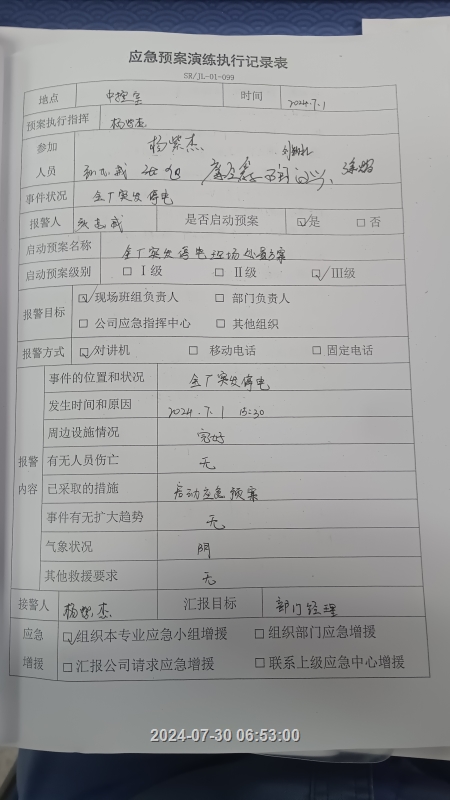 应急预案演练执行记录表
SR/JL-01-099
地点 中控室 时间 2024.7.1
预案执行指挥 杨紫杰
参加人员 杨紫杰
事件状况 全厂突发停电
报警人 是否启动预案 ☑是 □否
启动预案名称 全厂突发停电现场处置方案
启动预案级别 □Ⅰ级 □Ⅱ级 ☑Ⅲ级
报警目标 ☑现场班组负责人 □部门负责人
□公司应急指挥中心 □其他组织
报警方式 ☑对讲机 □移动电话 □固定电话
报警内容 事件的位置和状况 全厂突发停电
发生时间和原因 2024.7.1 15:30
周边设施情况 完好
有无人员伤亡 无
已采取的措施 启动应急预案
事件有无扩大趋势 无
气象状况 阴
其他救援要求 无
接警人 杨紫杰 汇报目标 部门经理
应急增援 ☑组织本专业应急小组增援 □组织部门应急增援
□汇报公司请求应急增援 □联系上级应急中心增援
2024-07-30 06:53:00